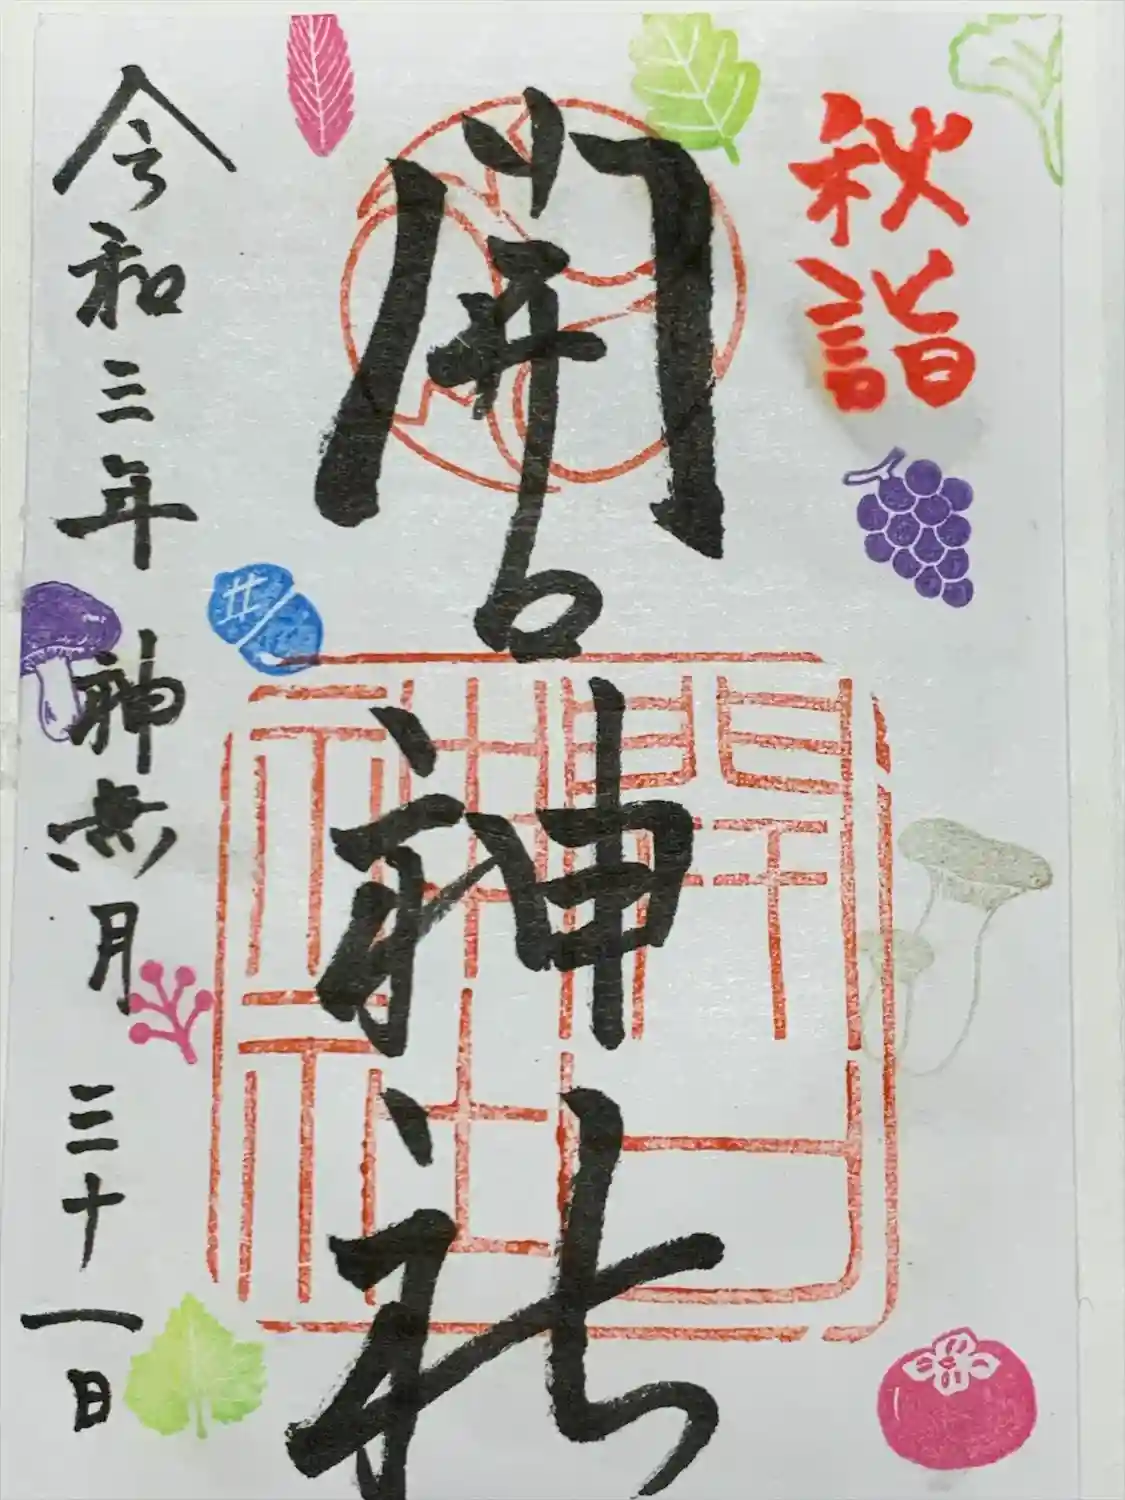 秋詣
開口神社
開口神社
令和三年 神無月 三十一日